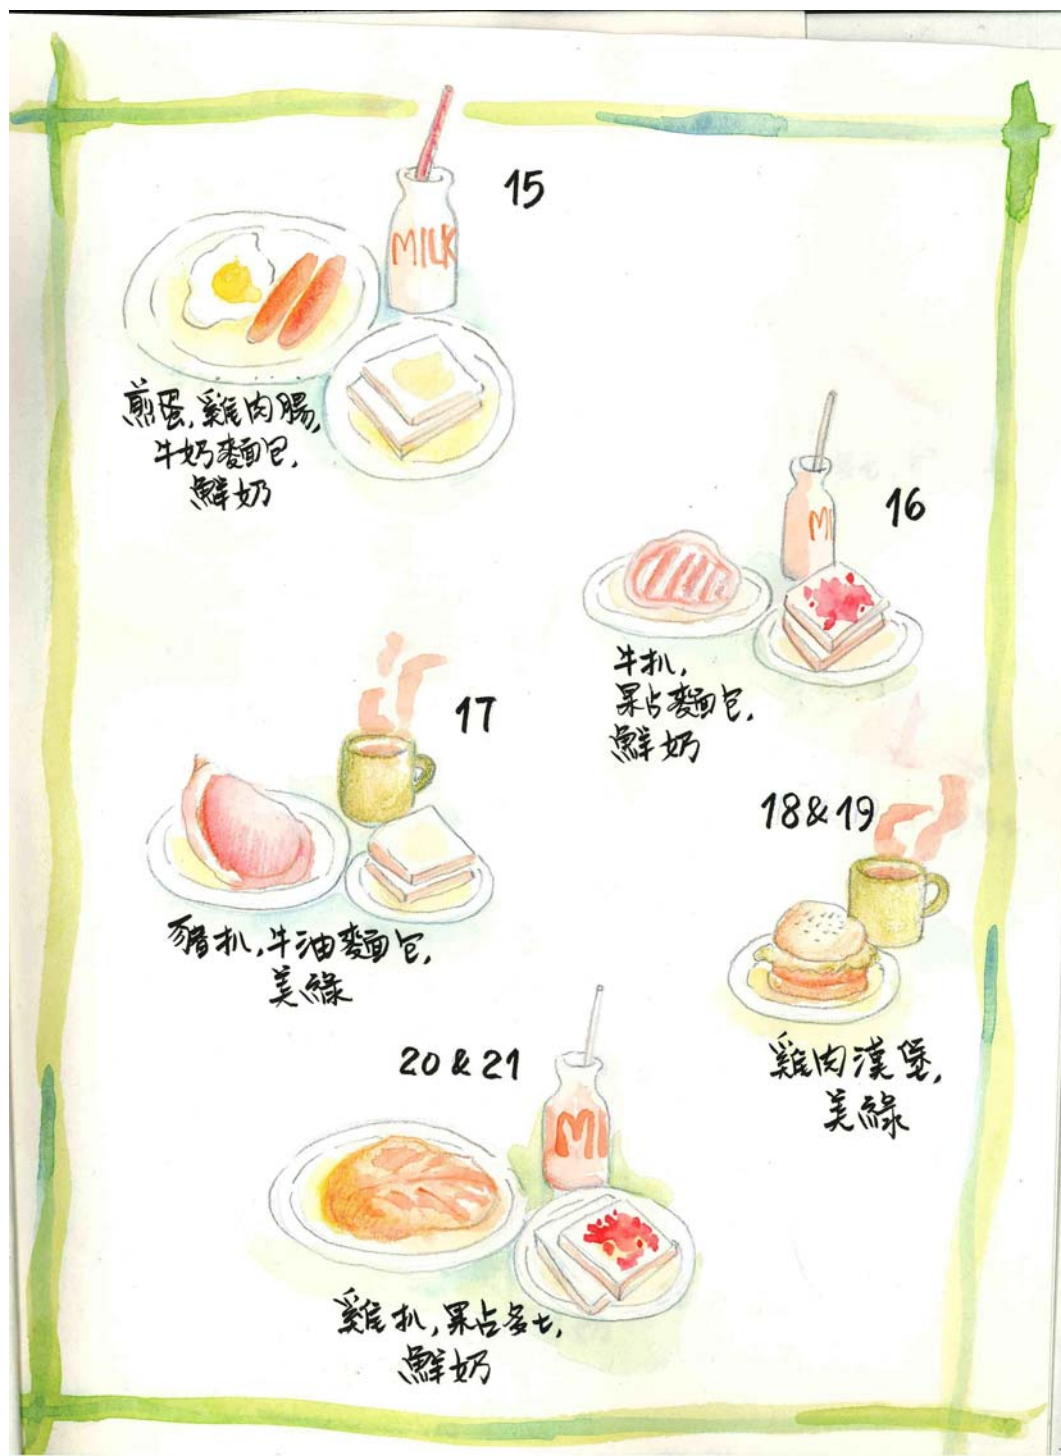 15
MILK
煎蛋,雞肉腸,
牛奶麵包,
鮮奶
16
MI
牛扒,
果占麵包,
鮮奶
17
豬扒,牛油麵包,
美綠
18&19
雞肉漢堡,
美綠
20 & 21
MI
雞扒,果占多士,
鮮奶